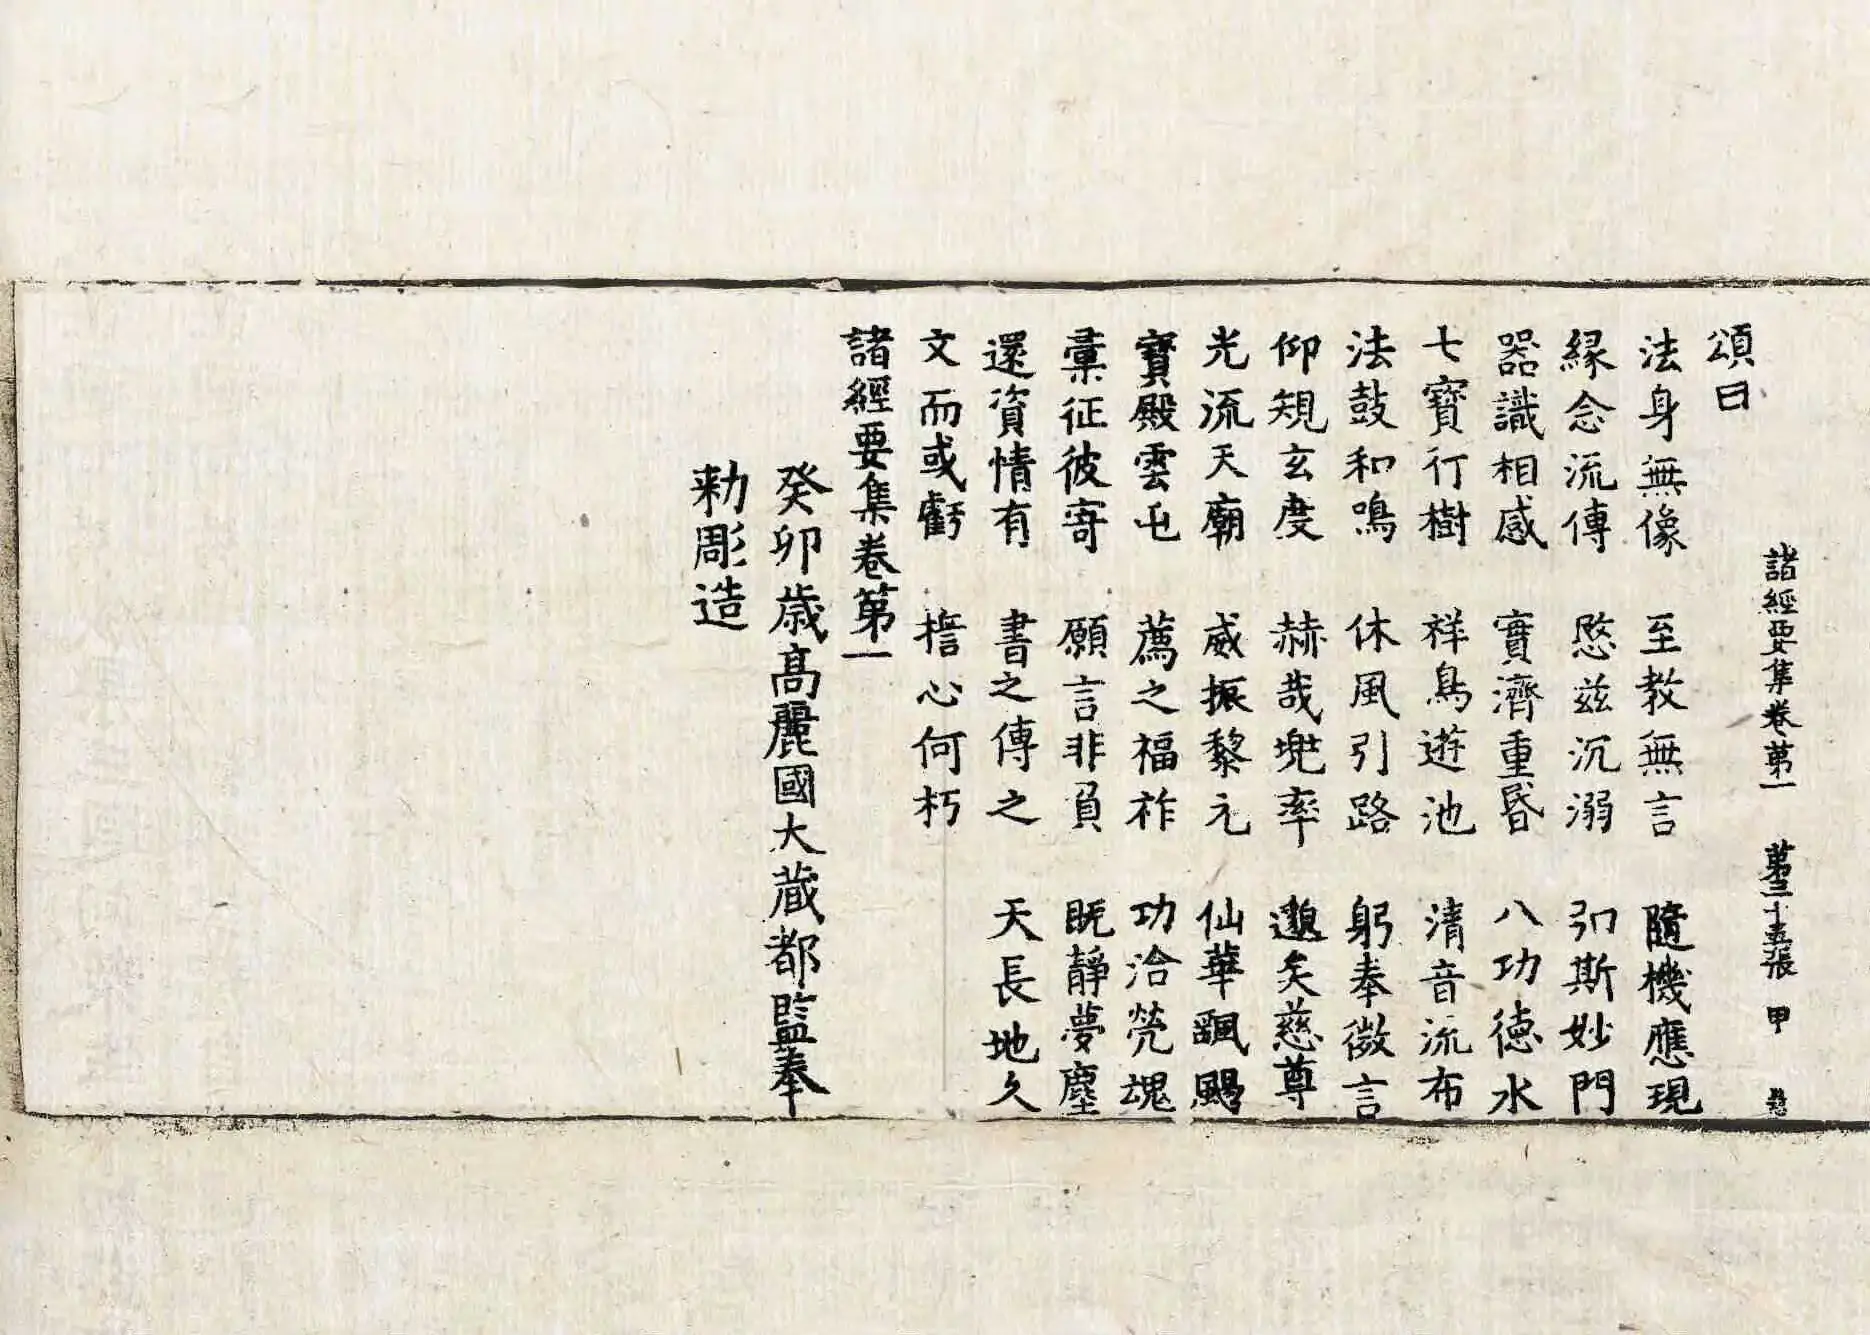 諸經要集卷第一　第三十五張　甲
頌曰
法身無像　至教無言　隨機應現
緣念流傳　愍茲沉溺　引斯妙門
器識相感　實濟重昏　八功德水
七寶行樹　祥鳥遊池　清音流布
法鼓和鳴　休風引路　躬奉微言
仰規玄度　赫哉兜率　邈矣慈尊
光流天廟　威振黎元　仙華颻颺
寶殿雲屯　薦之福祚　功洽煢魂
彙征彼寄　願言非負　既靜夢塵
還資情有　書之傳之　天長地久
文而或虧　擔心何朽
諸經要集卷第一
癸卯歲高麗國大藏都監奉
勅彫造